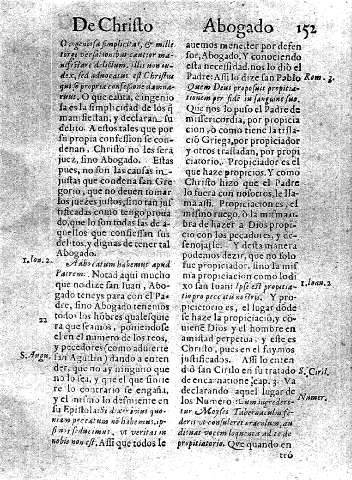 De Christo Abogado 152
O ingeniosa simplicitas, & mille
iudex, sed advocatus est Christus
O que cauta, è ingenio
sa es la simplicidad de los q̃
manifiestan, y declaran su
delito. A estos tales que por
su propia confession se con
denan, Christo no les sera
juez, sino Abogado. Estas
pues, no son las causas in-
justas que condena san Gre
gorio, que no deuen tomar
los juezes justos, sino tan jus
tificadas como tengo proua
do, que lo son todas las de a-
quellos que confiessan sus
delitos, y dignas de tener tal
Abogado.
1. Ioan. 2.
Aduocatum habemus apud
Patrem. Notad aqui mucho
que no dize san Iuan, Abo-
gado teneys para con el Pa-
dre, sino Abogado tenemos
todos los hõbres qualesquie
22
ra que seamos, poniendose
en el numero de los reos,
y pecadores (como aduierte
S. Augu.
san Agustin) dando a enten
der, que no ay ninguno que
no lo sea, y que el que sintie
re lo contrario se engaña,
y el mismo lo desmiente en
su Epistola: Si dixerimus quo-
niam peccatum nõ habemus, ip-
si nos seducimus, et veritas in
nobis non est. Assi que todos le
auemos menester por defen
sor, Abogado. Y conociendo
esta necessidad, nos lo diò el
Padre: Assi lo dize san Pablo
Rom. 3.
Quem Deus proposuit propitia-
tionem per fidẽ in sanguine suo.
Que nos lo puso el Padre de
misericordia, por propicia
cion, ò como tiene la trasla-
ciõ Griega, por propiciador
y otros trasladan, por propi
ciatorio. Propiciador es el
que haze propicios. Y como
Christo hizo que el Padre
lo fuera con nosotros, le lla-
ma assi. Propiciacion es, el
mismo ruego, ò la misma o-
bra de hazer a Dios propi-
cio con los pecadores, y de-
senojalle. Y desta manera
podemos dezir, que no solo
fue propiciador, sino la mis
ma propiciacion como lo di
xo san Iuan: Ipse est propitia-
1. Ioan. 2
tio pro peccatis nostris. Y pro-
piciatorio es, el lugar dõde
se haze la propiciaciõ, y co
uiene Dios y el hombre en
amistad perpetua, y este es
Christo, pues en el fuymos
justificados. Assi lo enten
diò san Cirilo en su tratado
S. Ciril.
de encarnatione, cap. 3. Va
declarando aquel lugar de
Numer.
los Numeros: Cum ingredere-
tur Moyses Tabernaculum fœ-
deris vt consuleret oraculum, au
diebat vocem loquentis ad se de
propitiatorio. Que quando en
trò